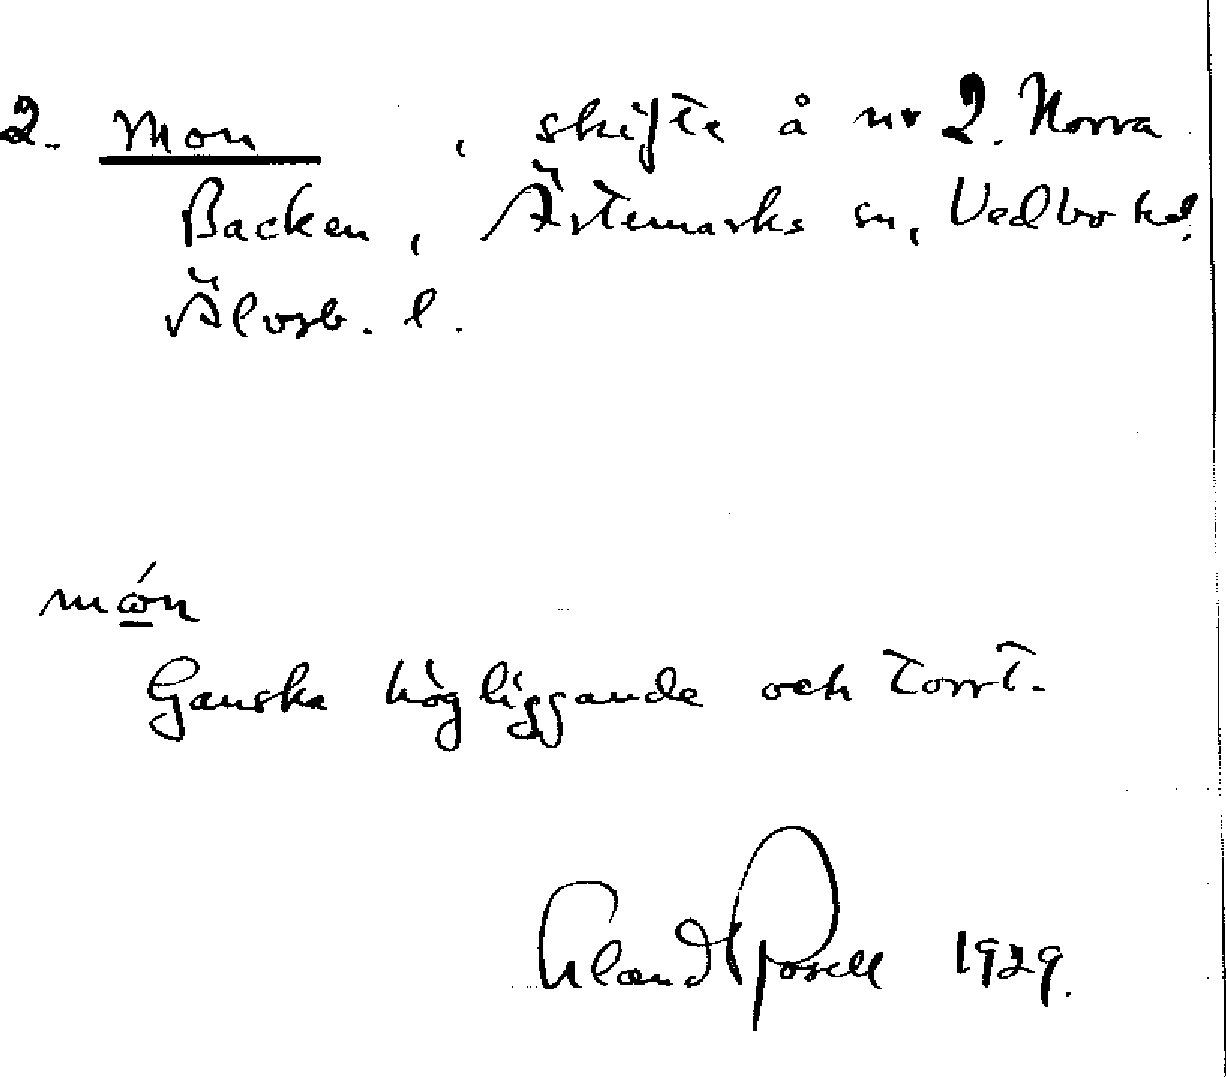 2. Mon , skifte å nr 2. Norra
Backen, Ärtemarks sn, Vedbo hd.
Älvsb. l.
món
Ganska högliggande och torrt.
1929.